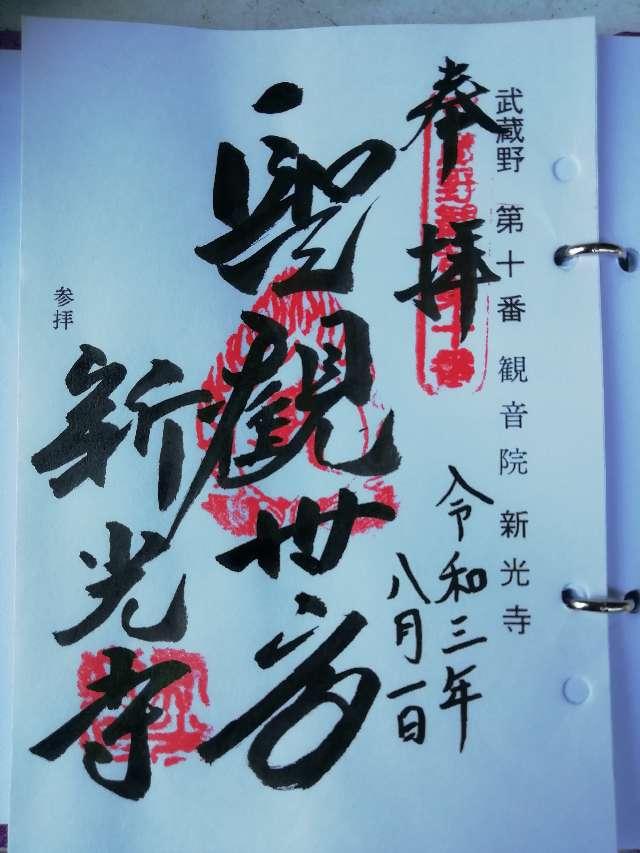 武蔵野 第十番 観音院 新光寺
奉拝
令和三年
八月一日
聖観世音
新光寺
参拝